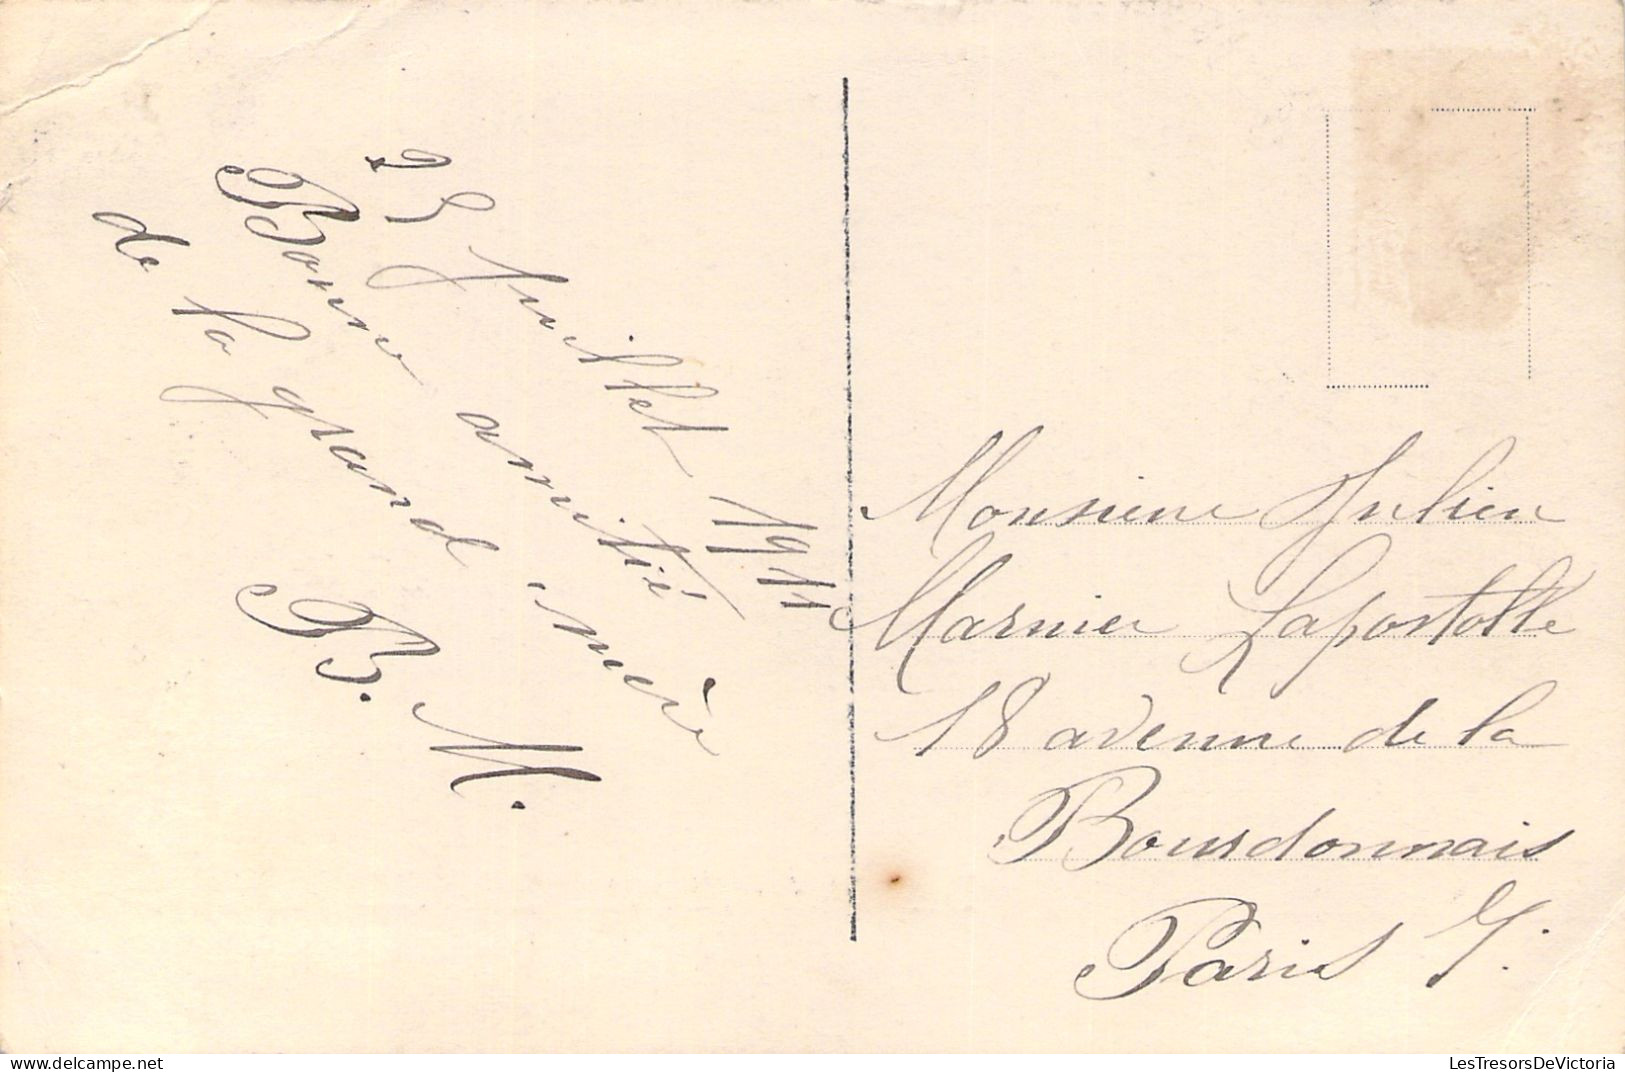 25 Juillet 1911
Bonne amitié
de la grand mère
B. M.
Monsieur Julien
Marnier Lapostolle
18 avenue de la
Bourdonnais
Paris 7.
LesTresorsDeVictoria